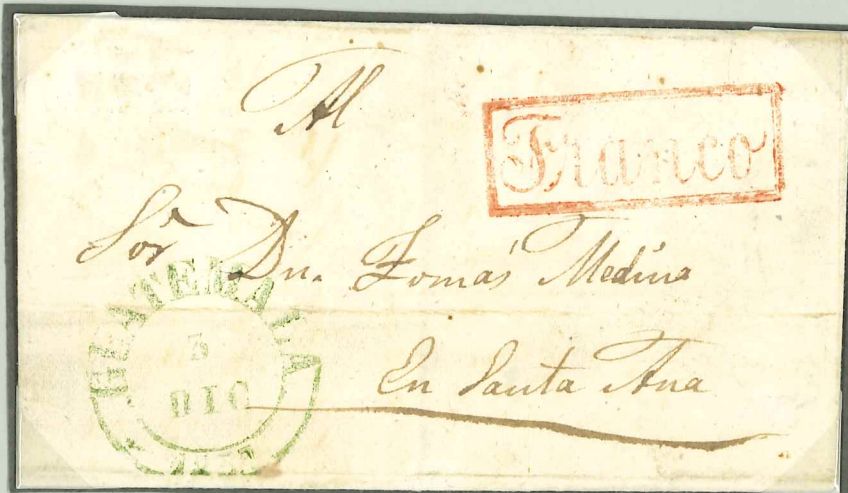 Al
Franco
Sor Dn. Tomás Medina
En Santa Ana
GUATEMALA
3
DIC